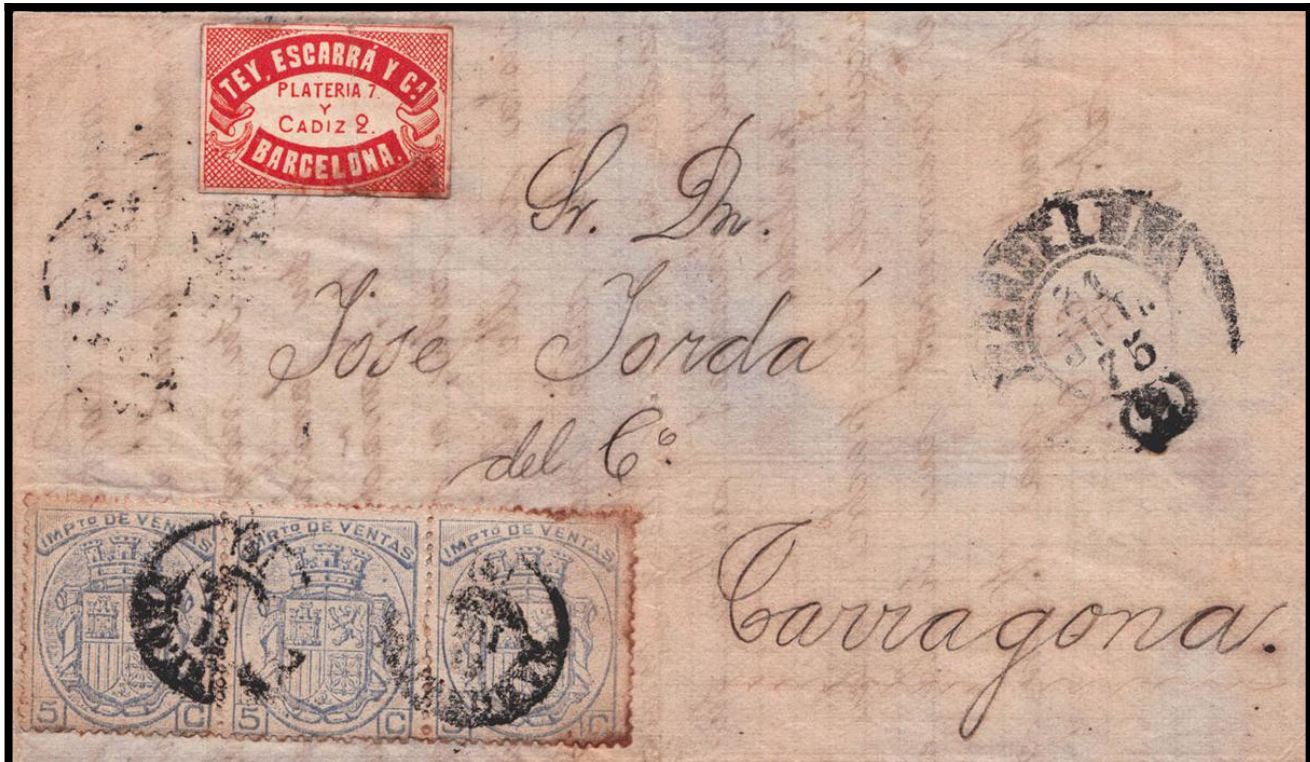 TEY, ESCARRÁ Y Cª
PLATERIA 7.
Y
CADIZ 2.
BARCELONA.
Sr. Dn.
Jose Jordá
del Cº.
Tarragona.
BARCELONA
IMPTO DE VENTAS
5 C
IMPTO DE VENTAS
5 C
IMPTO DE VENTAS
5 C